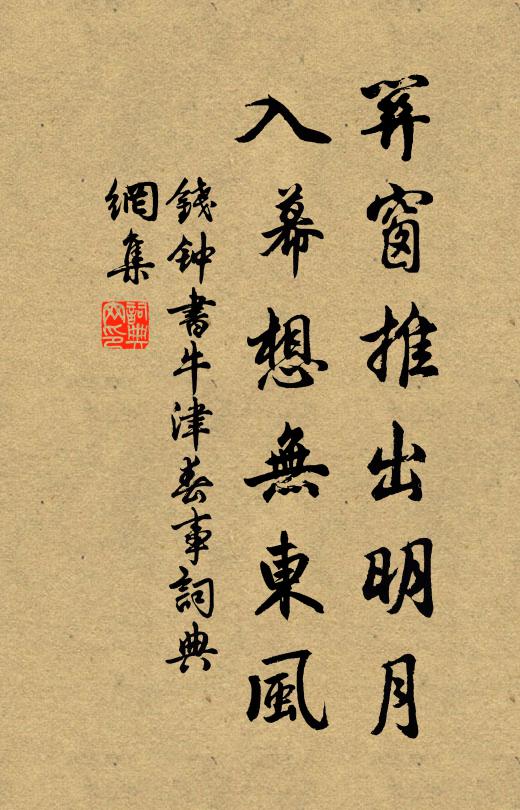 窗推出明月
入幕想無東風
錢鍾書牛津春事詞典
網集
詞典
网印